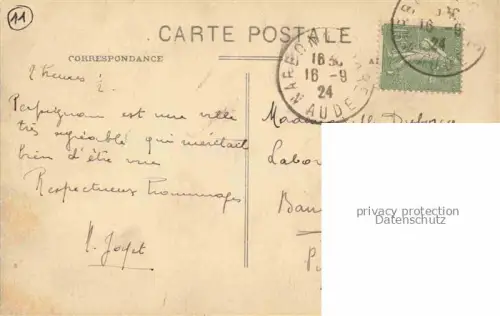 11
CARTE POSTALE
CORRESPONDANCE
2 heures
Perpignan est une ville
très agréable qui méritait
bien d'être vue
Respectueux hommages
NARBONNE
16 30
16 - 9
24
AUDE
16 - 9
24
Labo
Ban
privacy protection
Datenschutz